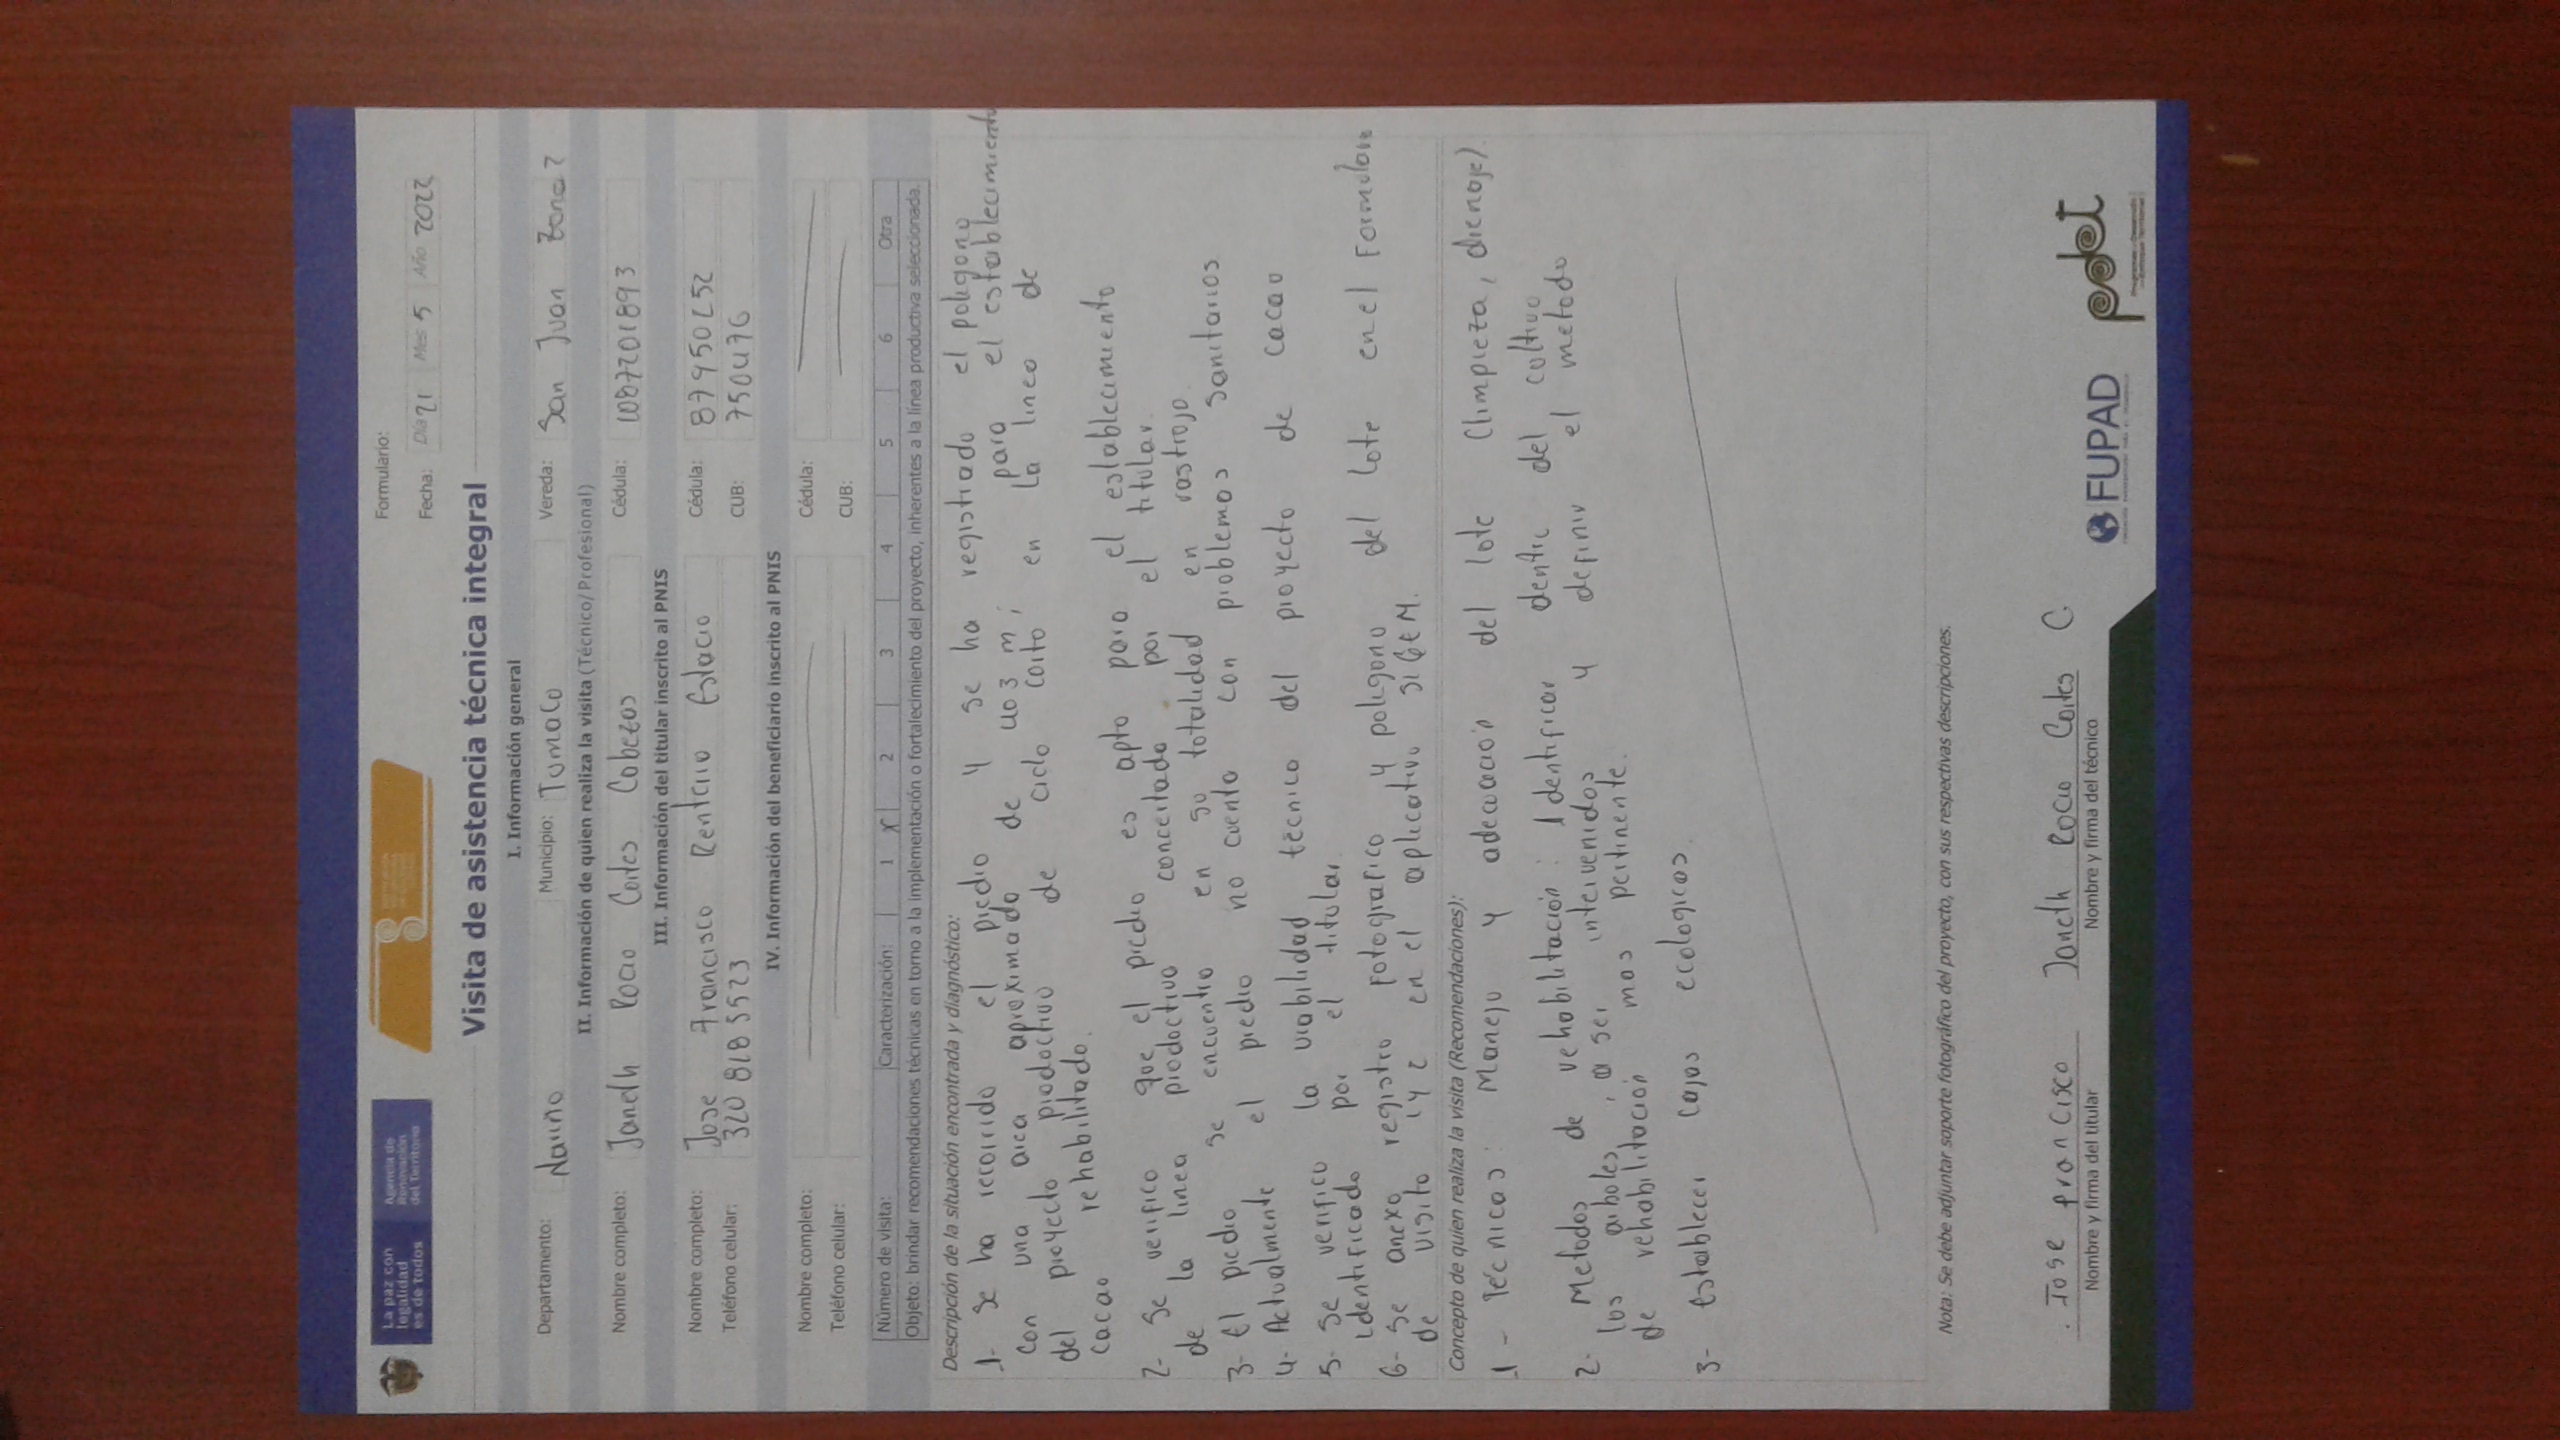 La paz con
legalidad
es de todos
Agencia de
Renovación
del Territorio
Formulario:
Fecha: Día 21 Mes 5 Año 2022
Visita de asistencia técnica integral
I. Información general
Departamento: Nariño Municipio: Tumaco Vereda: San Juan
II. Información de quien realiza la visita (Técnico/ Profesional)
Nombre completo: Janeth Rocio Cortes Cabezas Cédula: 1087201893
III. Información del titular inscrito al PNIS
Nombre completo: Jose Francisco Renteria Estacio Cédula: 87950252
Teléfono celular: 320 818 5523 CUB: 750476
IV. Información del beneficiario inscrito al PNIS
Nombre completo: Cédula:
Teléfono celular: CUB:
Número de visita: Caracterización: 1 X 2 3 4 5 6 Otra
Objeto: brindar recomendaciones técnicas en torno a la implementación o fortalecimiento del proyecto, inherentes a la línea productiva seleccionada.
Descripción de la situación encontrada y diagnóstico:
1- se ha recorrido el predio y se ha registrado el poligono
con una area aproximado de m, para el establecimiento
del proyecto productivo de ciclo corto en la linea de
cacao rehabilitado.
2- Se verifico que el predio es apto para el establecimiento
de la linea productivo concertado por el titular.
3- El predio se encuentra en su totalidad en rastrojo.
4- Actualmente el predio no cuenta con problemas sanitarios.
5- Se verifico la viabilidad técnico del proyecto de cacao
identificado por el titular.
6- Se anexo registro fotografico y poligono del lote en el Formulario
de visita 1 y 2 en el aplicativo SIGEM.
Concepto de quien realiza la visita (Recomendaciones):
1- Técnicas: Manejo y adecuación del lote (limpieza, drenaje).
2- Metodos de rehabilitación: identificar dentro del cultivo
los arboles, a ser intervenidos y definir el metodo
de rehabilitación mas pertinente.
3- Establecer cajas ecologicas.
Nota: Se debe adjuntar soporte fotográfico del proyecto, con sus respectivas descripciones.
Jose francisco
Nombre y firma del titular
Janeth Rocio Cortes C
Nombre y firma del técnico
FUPAD
pdet